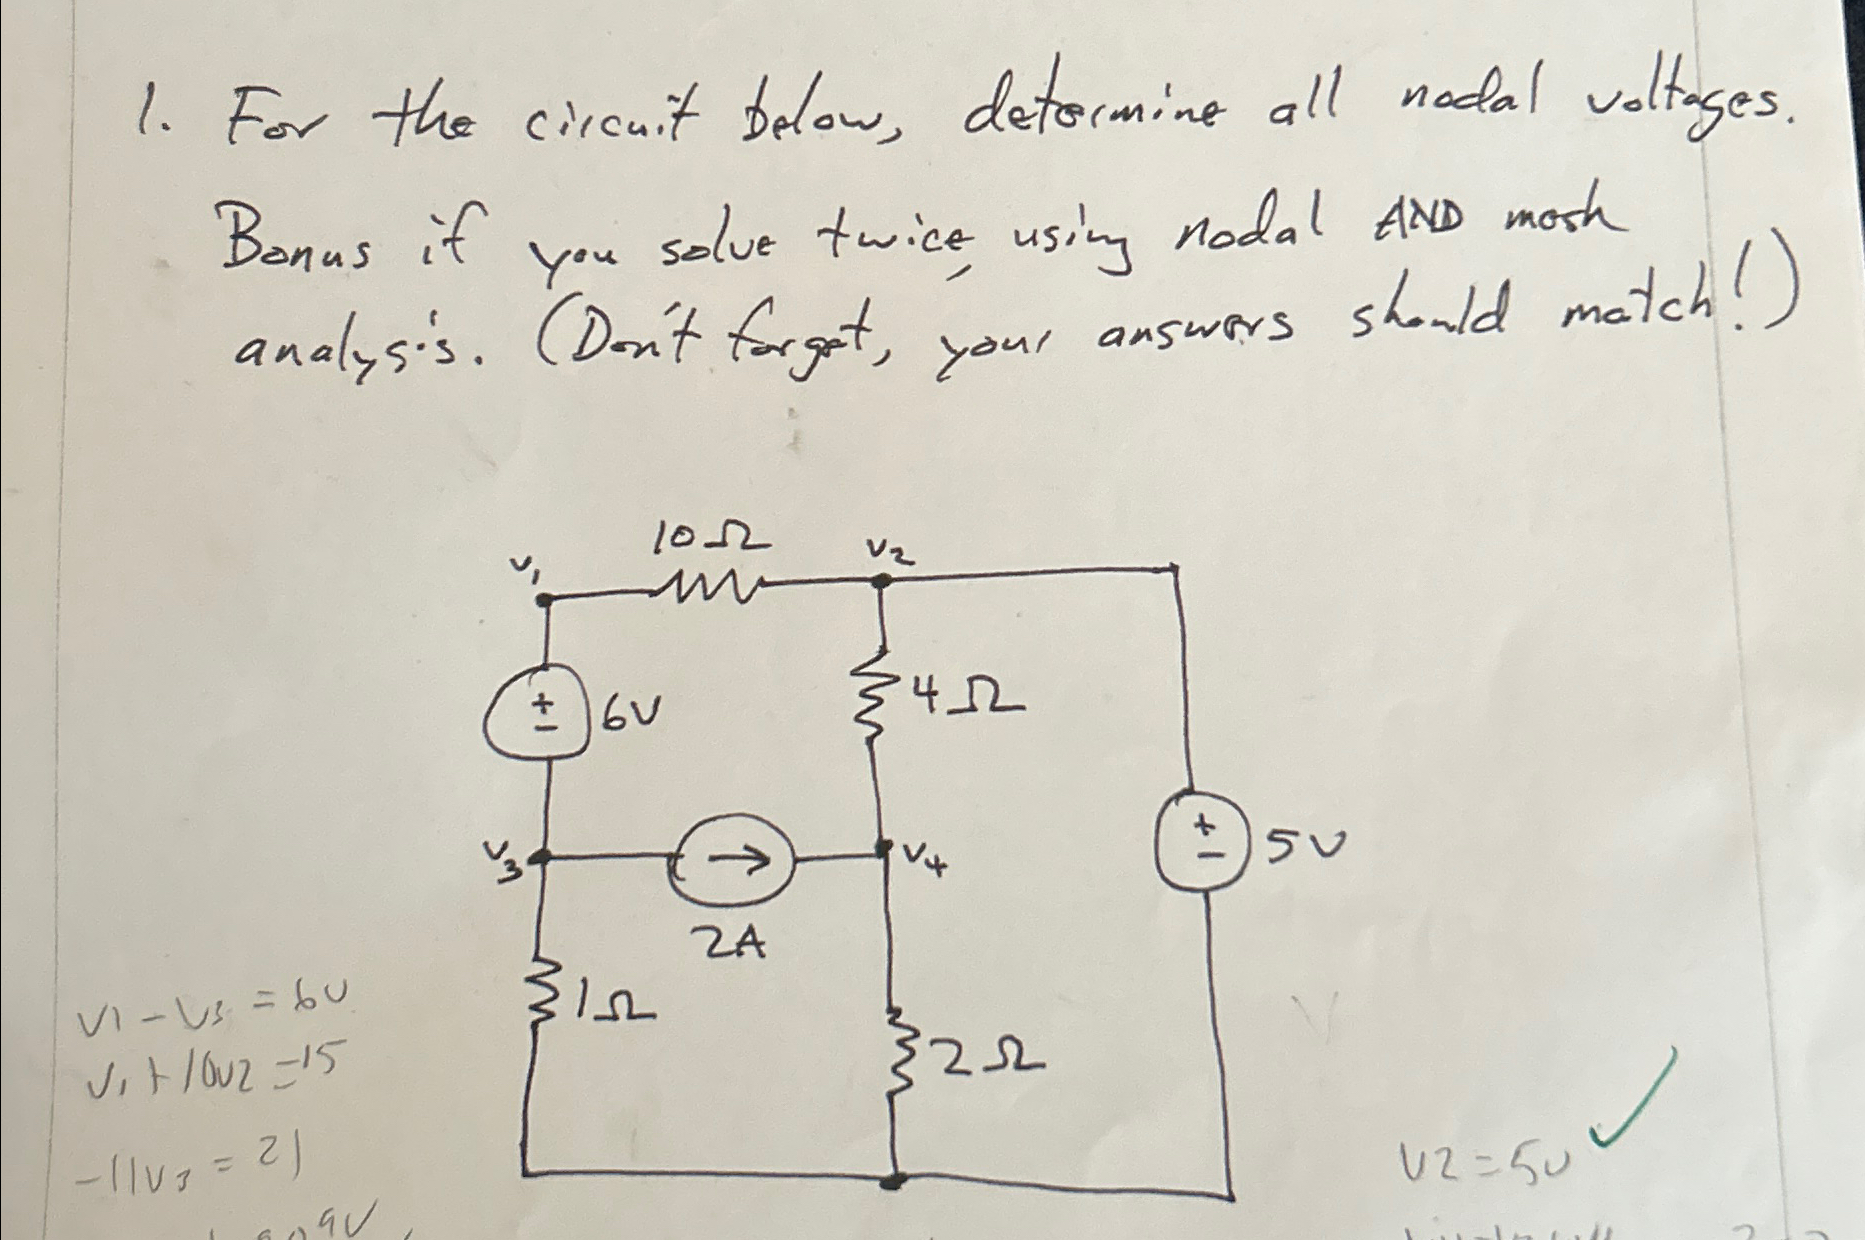 1. For the circuit below, determine all nodal voltages.
Bonus if you solve twice, using nodal AND mesh
analysis. (Don't forget, your answers should match!)
10Ω
V1
V2
6V
4Ω
+
-
+
-
5V
V3
V4
2A
1Ω
2Ω
V1 - V3 = 6V
V1 + 10V3 = -15
-11V3 = 21
V2 = 5V ✓